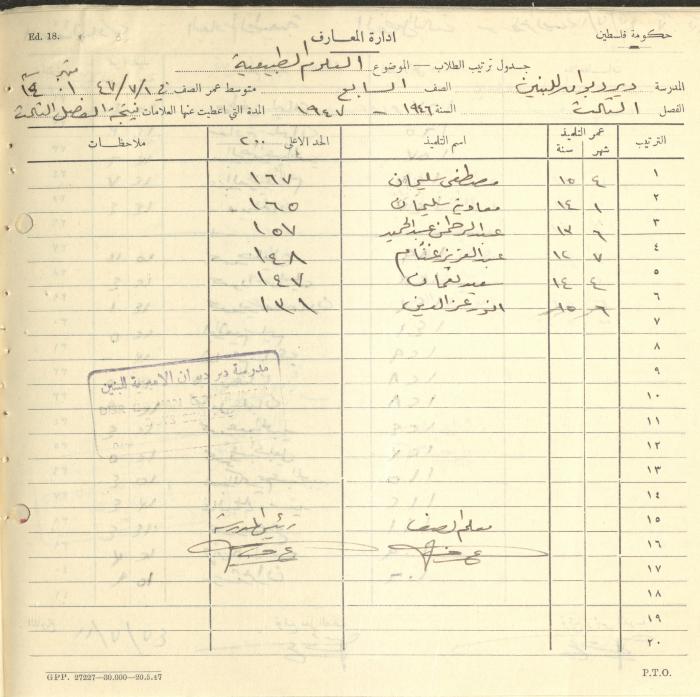 حكومة فلسطين
ادارة المعارف
Ed. 18.
جدول ترتيب الطلاب — الموضوع العلوم الطبيعية
المدرسة ديرديوان للبنين الصف السابع متوسط عمر الصف في ٤٧/٧/١
الفصل الثالث السنة ١٩٤٦ - ١٩٤٧ المدة التي اعطيت عنها العلامات نتيجة الفصل الثالث
الترتيب عمر التلميذ شهر سنة اسم التلميذ الحد الاعلى ٢٠٠ ملاحظات
١ ٤ ١٥ مصطفى سليمان ١٦٧
٢ ١ ١٤ سليمان ١٦٥
٣ ٦ ١٣ عبدالرحمن عبدالحميد ١٥٧
٤ ٧ ١٢ عبدالعزيز غنام ١٤٨
٥ ٤ ١٤ سعيد نعمان ١٤٧
٦ ٦ ١٥ انور عزالدين ١٣١
٧
٨
٩
مدرسة دير ديوان الاميرية للبنين
١٠
١١
١٢
١٣
١٤
١٥ معلم الصف رئيس المدرسة
١٦
١٧
١٨
١٩
٢٠
GPP. 27227—30.000—20.5.47
P.T.O.